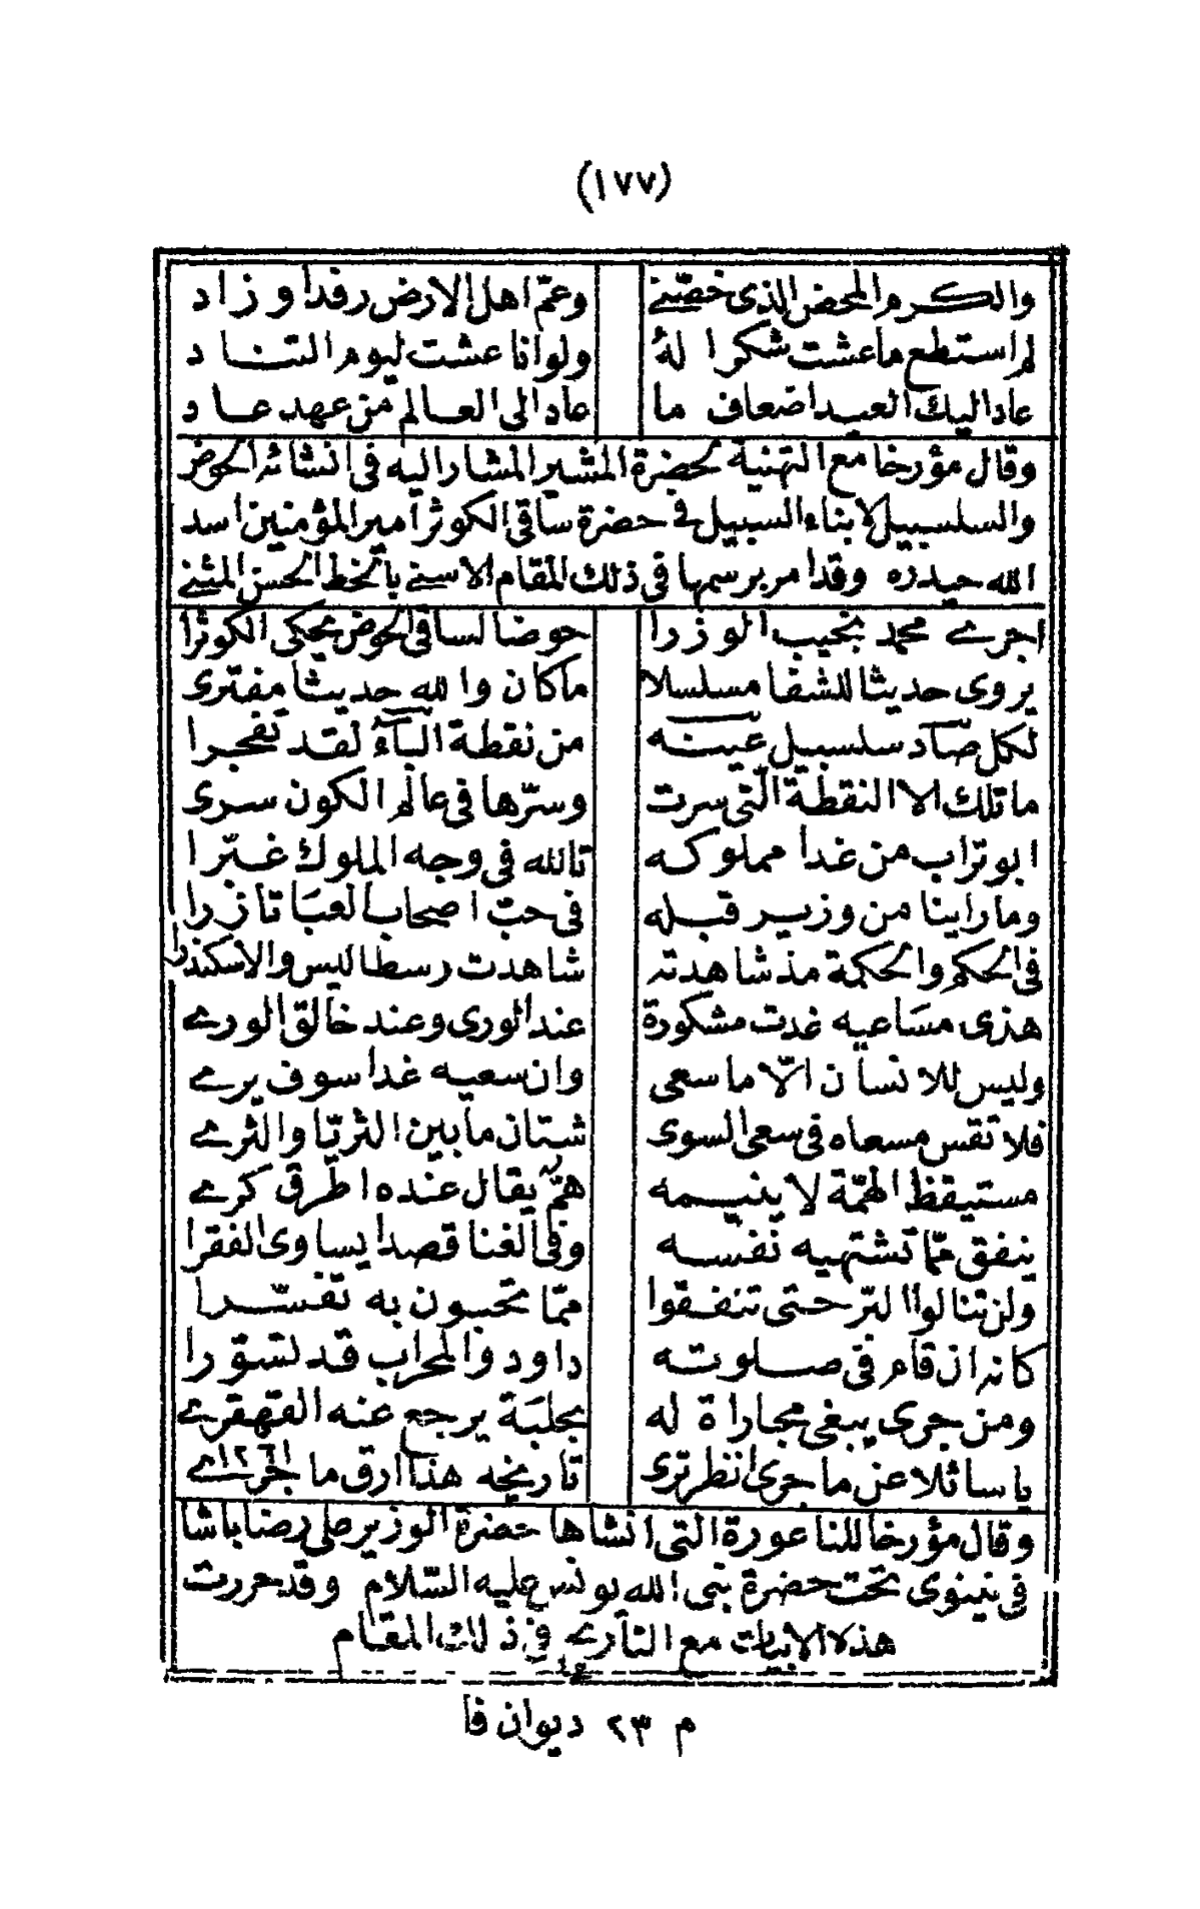 (١٧٧)
والكرم المحض الذى خصّنے وعمّ اهل الارض رفدا وزاد
لم استطع ما عشت شكرا لهُ ولو انا عشت ليوم التناد
عاد اليك العيد اضعاف ما عاد الى العالم من عهد عاد
وقال مؤرخا مع التهنية لحضرة المشير المشار اليه فى انشائه الحوض
والسلسبيل لابناء السبيل فى حضرة ساقى الكوثر امير المؤمنين اسد
الله حيدره وقد امر برسمها فى ذلك المقام الاسنے بالخط الحسن المثنے
اجرے محمد نجيب الوزرا حوضا لساقى الحوض يحكى الكوثرا
يروى حديثا للشفا مسلسلا ماكان والله حديثا مفترى
لكل صاد سلسبيل عينه من نقطة الباء لقد تفجرا
ما تلك الا النقطة الّتى سرت وسرّها فى عالم الكون سرى
ابو تراب من غدا مملوكه تالله فى وجه الملوك غبّرا
وما راينا من وزير قبله فى حبّ اصحاب العبَا تازرا
فى الحكم والحكمة مذ شاهدته شاهدت رسطاليس والاسكندرا
هذى مسَاعيه غدت مشكورة عند الورى وعند خالق الورے
وليس للانسان الّا ما سعى وان سعيه غدا سوف يرے
فلا تقس مسعاه فى سعى السوى شتان مابين الثريّا والثرے
مستيقظ الهمّة لا ينيمه همّ يقال عنده اطرق كرے
ينفق ممّا تشتهيه نفسه وفى الغنا قصدا يساوى الفقرا
ولن تنالوا البّر حتى تنفقوا ممّا تحبون به تفسّرا
كانه ان قام فى صلوته داود والمحراب قد تسوّرا
ومن جرى يبغى مجاراة له بجلبَة يرجع عنه القهقرے
يا سائلا عن ما جرى انظر ترى تاريخه هذا ارق ما اجرے ١٢٦١
وقال مؤرخا للناعورة التى انشاها حضرة الوزير على رضا باشا
فى نينوى تحت حضرة نبى الله يونس عليه السّلام وقد حررت
هذه الابيات مع التاريخ فى ذلك المقام
م ٢٣ ديوان فا